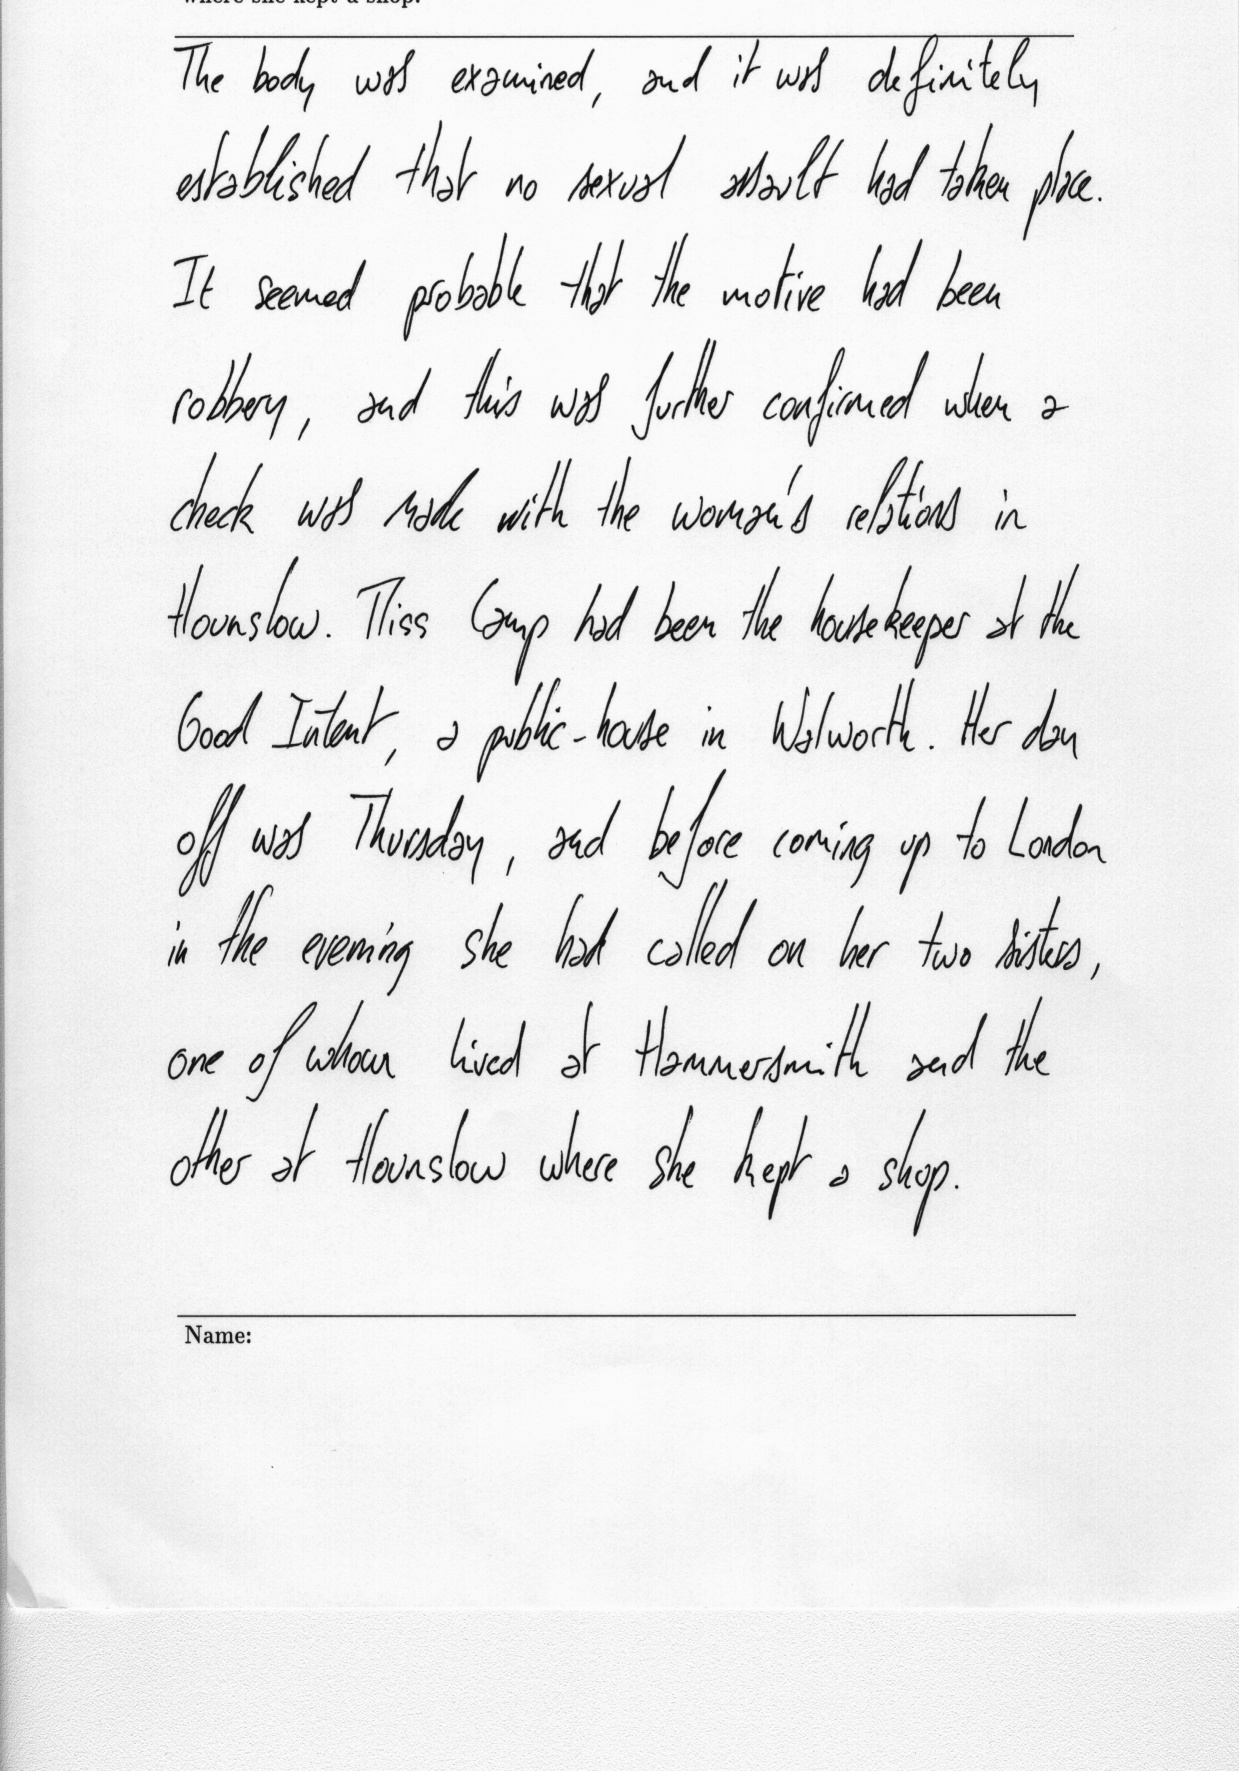 where she kept a shop.
The body was examined, and it was definitely
established that no sexual assault had taken place.
It seemed probable that the motive had been
robbery, and this was further confirmed when a
check was made with the woman's relations in
Hounslow. Miss Camp had been the housekeeper at the
Good Intent, a public-house in Walworth. Her day
off was Thursday, and before coming up to London
in the evening she had called on her two sisters,
one of whom lived at Hammersmith and the
other at Hounslow where she kept a shop.
Name: